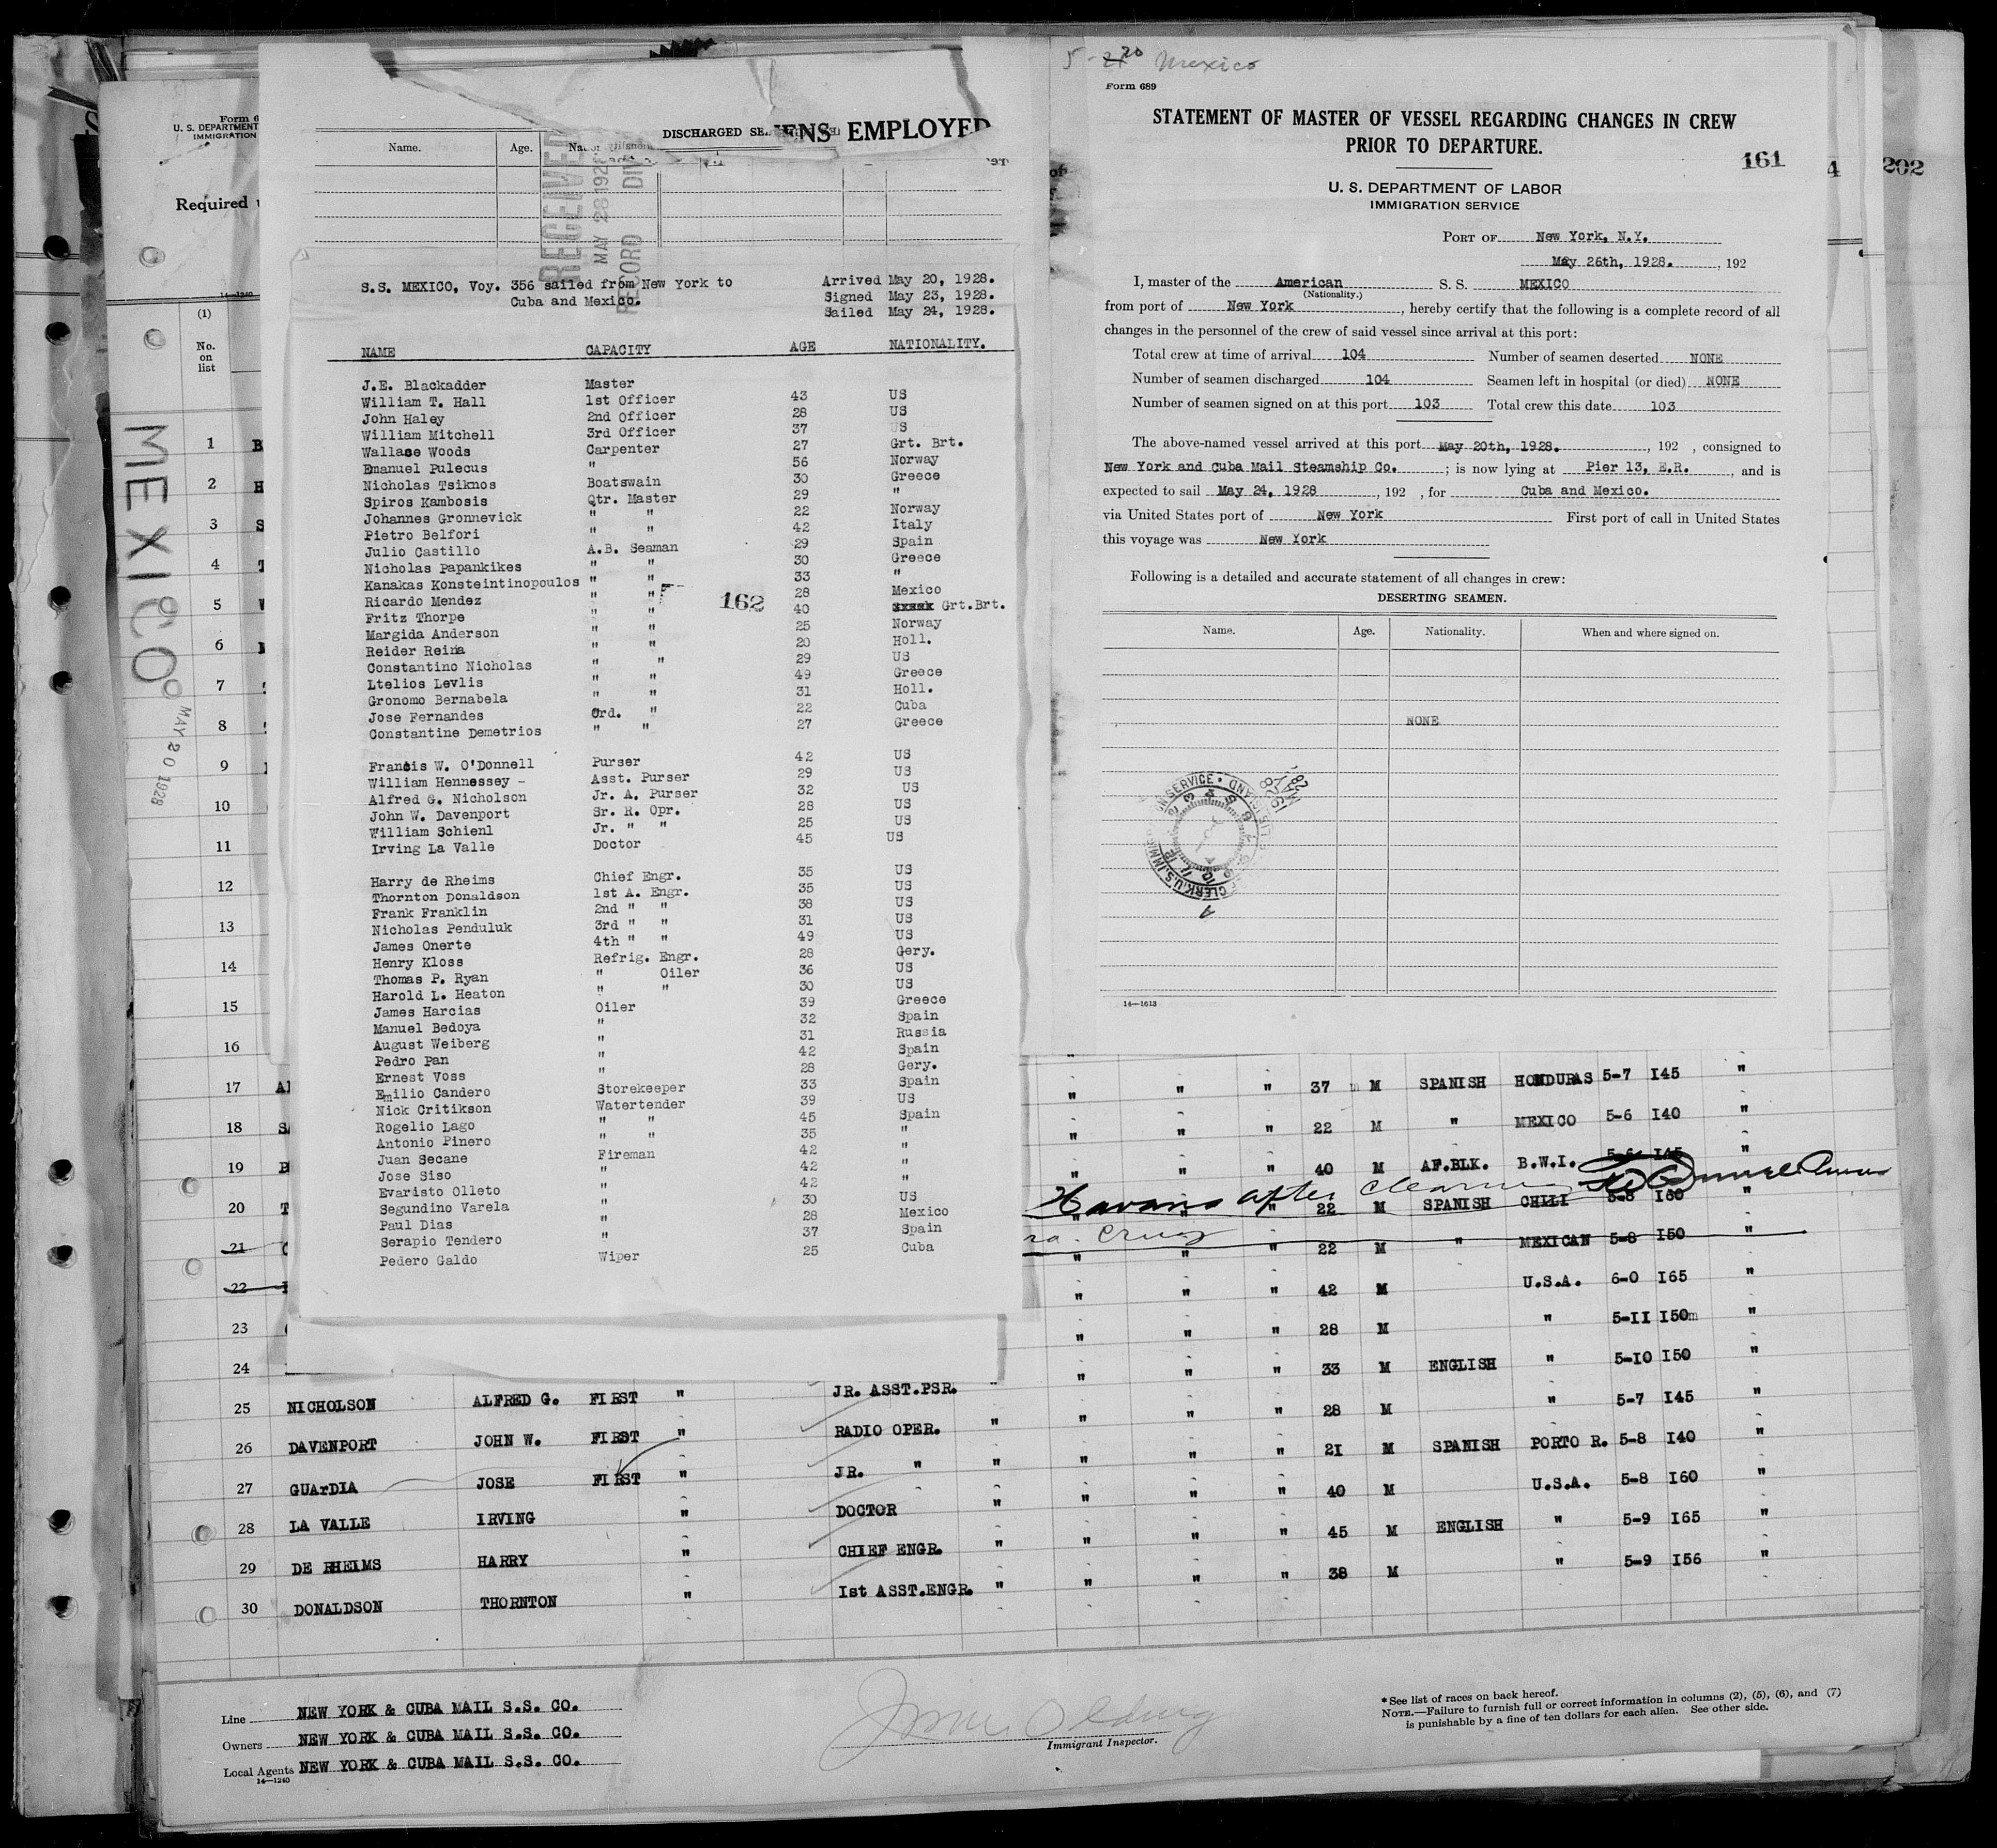 5-20 Mexico
Form 689
STATEMENT OF MASTER OF VESSEL REGARDING CHANGES IN CREW
PRIOR TO DEPARTURE.
161
202
U. S. DEPARTMENT OF LABOR
IMMIGRATION SERVICE
PORT OF New York, N.Y.
May 26th, 1928. , 192
I, master of the American S. S. MEXICO
(Nationality.)
from port of New York , hereby certify that the following is a complete record of all
changes in the personnel of the crew of said vessel since arrival at this port:
Total crew at time of arrival 104 Number of seamen deserted NONE
Number of seamen discharged 104 Seamen left in hospital (or died) NONE
Number of seamen signed on at this port 103 Total crew this date 103
The above-named vessel arrived at this port May 20th, 1928. , 192 , consigned to
New York and Cuba Mail Steamship Co. ; is now lying at Pier 13, E.R. , and is
expected to sail May 24, 1928 , 192 , for Cuba and Mexico.
via United States port of New York First port of call in United States
this voyage was New York
Following is a detailed and accurate statement of all changes in crew:
DESERTING SEAMEN.
Name. Age. Nationality. When and where signed on.
NONE
14—1613
U. S. DEPARTMENT
IMMIGRATION
Required
14—1240
(1)
No.
on
list
MEXICO
MAY 20 1928
DISCHARGED
ENS EMPLOYED
Name. Age.
RECEIVED
MAY 28 1928
RECORD DIV
S.S. MEXICO, Voy. 356 sailed from New York to Arrived May 20, 1928.
Cuba and Mexico. Signed May 23, 1928.
Sailed May 24, 1928.
NAME CAPACITY AGE NATIONALITY.
J.E. Blackadder Master
William T. Hall 1st Officer 43 US
John Haley 2nd Officer 28 US
William Mitchell 3rd Officer 37 US
Wallace Woods Carpenter 27 Grt. Brt.
Emanuel Pulecus " 56 Norway
Nicholas Tsiknos Boatswain 30 Greece
Spiros Kambosis Qtr. Master 29 "
Johannes Gronnevick " " 22 Norway
Pietro Belfori " " 42 Italy
Julio Castillo A.B. Seaman 29 Spain
Nicholas Papankikes " " 30 Greece
Kanakas Konsteintinopoulos " " 33 "
Ricardo Mendez " " 28 Mexico
162
Fritz Thorpe " " 40 Grt.Brt.
Margida Anderson " " 25 Norway
Reider Reina " " 20 Holl.
Constantino Nicholas " " 29 US
Ltelios Levlis " " 49 Greece
Gronomo Bernabela " " 31 Holl.
Jose Fernandes Ord. " 22 Cuba
Constantine Demetrios " " 27 Greece
Francis W. O'Donnell Purser 42 US
William Hennessey - Asst. Purser 29 US
Alfred G. Nicholson Jr. A. Purser 32 US
John W. Davenport Sr. R. Opr. 28 US
William Schienl Jr. " " 25 US
Irving La Valle Doctor 45 US
Harry de Rheims Chief Engr. 35 US
Thornton Donaldson 1st A. Engr. 35 US
Frank Franklin 2nd " " 38 US
Nicholas Penduluk 3rd " " 31 US
James Onerte 4th " " 49 US
Henry Kloss Refrig. Engr. 28 Gery.
Thomas P. Ryan " Oiler 36 US
Harold L. Heaton " " 30 US
James Harcias Oiler 39 Greece
Manuel Bedoya " 32 Spain
August Weiberg " 31 Russia
Pedro Pan " 42 Spain
Ernest Voss " 28 Gery.
Emilio Candero Storekeeper 33 Spain
Nick Critikson Watertender 39 US
Rogelio Lago " " 45 Spain
Antonio Pinero " " 35 "
Juan Secane Fireman 42 "
Jose Siso " 42 "
Evaristo Olleto " 42 "
Segundino Varela " 30 US
Paul Dias " 28 Mexico
Serapio Tendero " 37 Spain
Pedero Galdo Wiper 25 Cuba
1
2
3
4
5
6
7
8
9
10
11
12
13
14
15
16
17 " " " 37 M SPANISH HONDURAS 5-7 I45 "
18 " " " 22 M " MEXICO 5-6 I40 "
19 " " " 40 M AF.BLK. B.W.I. 5-6 I45 "
Havana after clearing
20 " " " 22 M SPANISH CHILI 5-8 I60 "
21 " " " 22 M " MEXICAN 5-8 I50 "
22 " " " 42 M U.S.A. 6-0 I65 "
23 " " " 28 M " 5-II I50 "
24 " " " 33 M ENGLISH " 5-I0 I50 "
25 NICHOLSON ALFRED G. FIRST " JR. ASST.PSR. " " " " 28 M " 5-7 I45 "
26 DAVENPORT JOHN W. FIRST " RADIO OPER. " " " " 2I M SPANISH PORTO R. 5-8 I40 "
27 GUArDIA JOSE FIRST " JR. " " " " " 40 M U.S.A. 5-8 I60 "
28 LA VALLE IRVING " DOCTOR " " " " 45 M ENGLISH " 5-9 I65 "
29 DE RHEIMS HARRY " CHIEF ENGR. " " " " 38 M " 5-9 I56 "
30 DONALDSON THORNTON " Ist ASST.ENGR. "
Line NEW YORK & CUBA MAIL S.S. CO.
Owners NEW YORK & CUBA MAIL S.S. CO.
Local Agents NEW YORK & CUBA MAIL S.S. CO.
14—1240
Immigrant Inspector.
*See list of races on back hereof.
NOTE.—Failure to furnish full or correct information in columns (2), (5), (6), and (7)
is punishable by a fine of ten dollars for each alien. See other side.